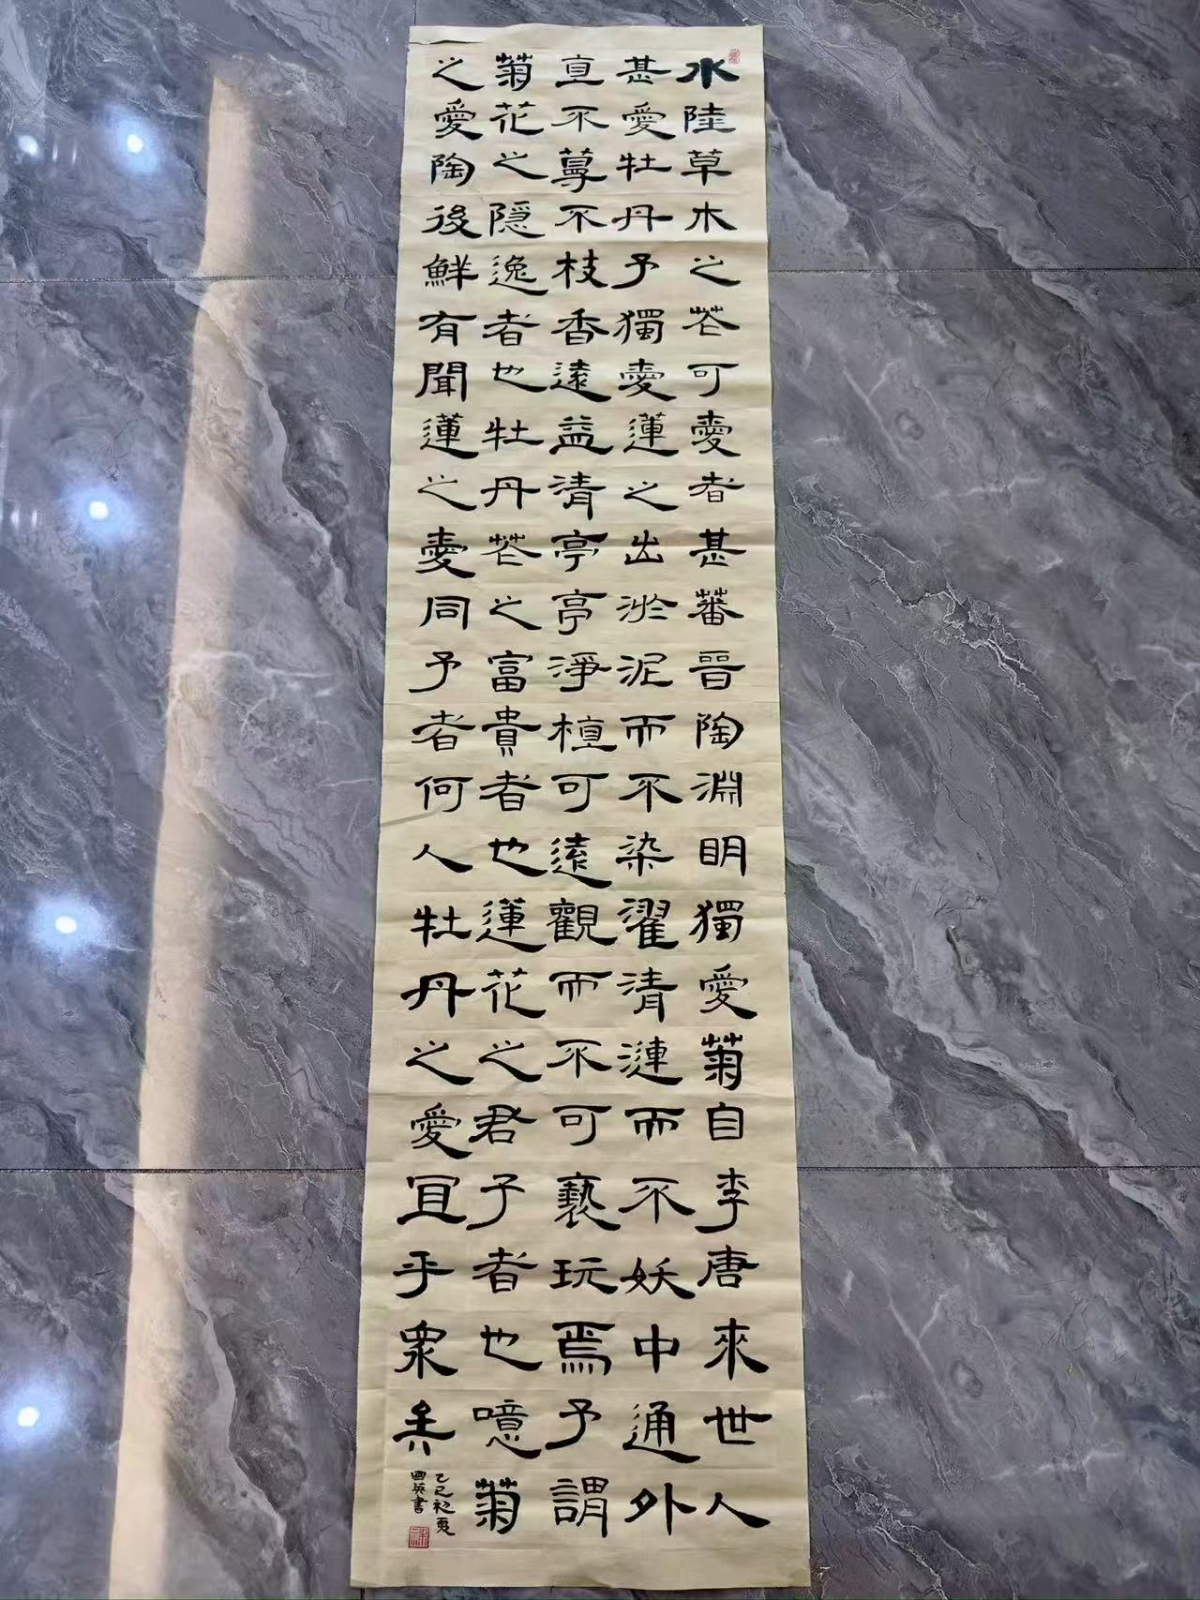 水陸草木之花可愛者甚蕃晉陶淵明獨愛菊自李唐來世人
甚愛牡丹予獨愛蓮之出淤泥而不染濯清漣而不妖中通外
直不蔓不枝香遠益清亭亭淨植可遠觀而不可褻玩焉予謂
菊花之隱逸者也牡丹花之富貴者也蓮花之君子者也噫菊
之愛陶後鮮有聞蓮之愛同予者何人牡丹之愛宜乎眾矣
乙巳初夏
英書